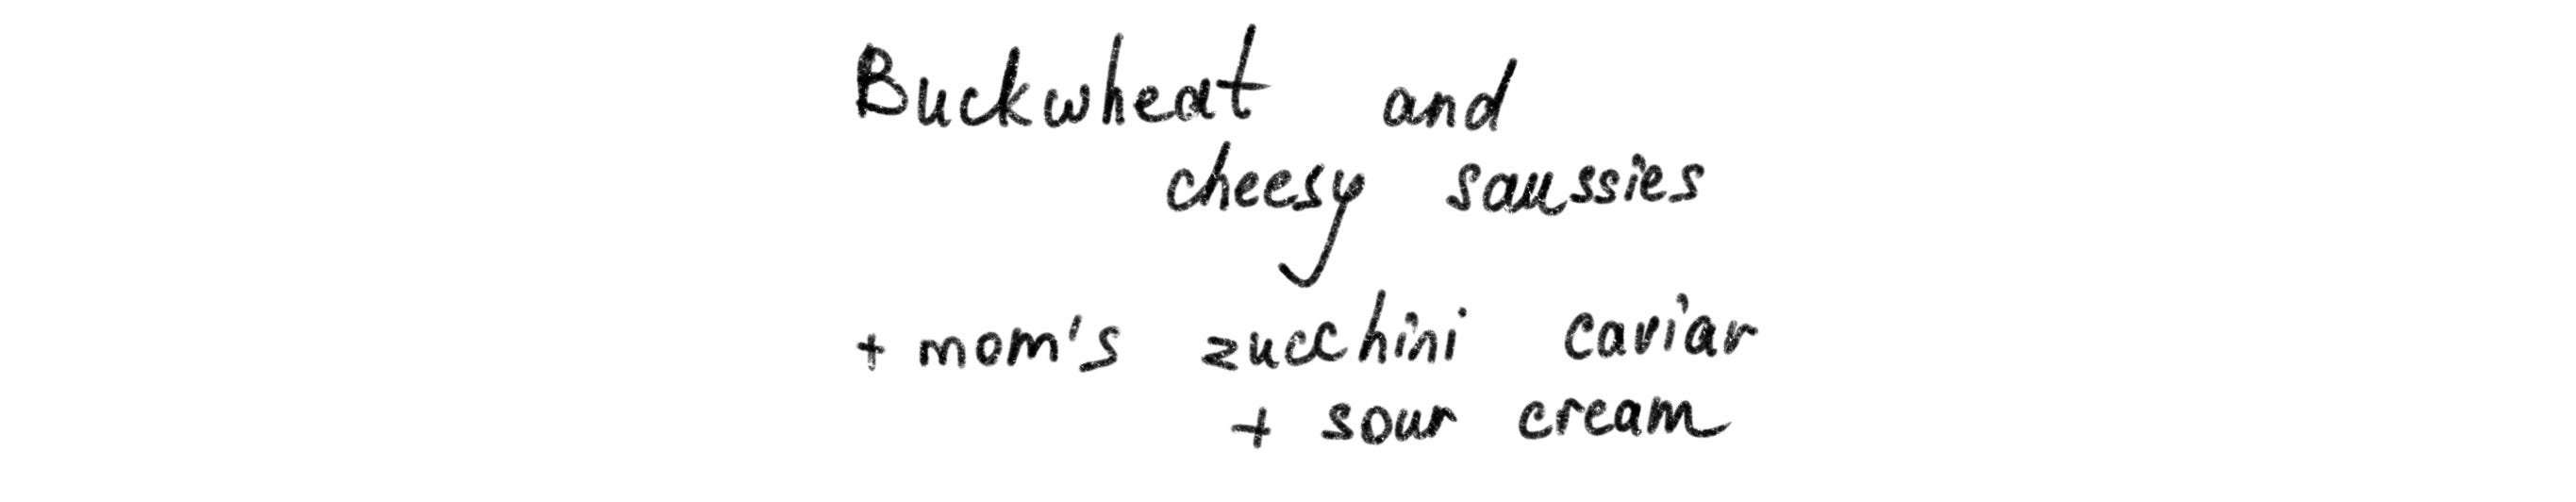 Buckwheat and
cheesy saussies
+ mom's zucchini caviar
+ sour cream